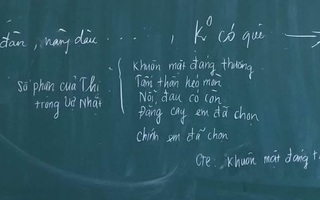 đần, nàng dâu ...., ko có quê →
Số phận của Thị trong Vợ Nhặt
Khuôn mặt đáng thương
Tấn thân héo mòn
Nỗi đau cỏ còn
Đắng cay em đã chọn
Chính em đã chọn
Cre: khuôn mặt đáng t